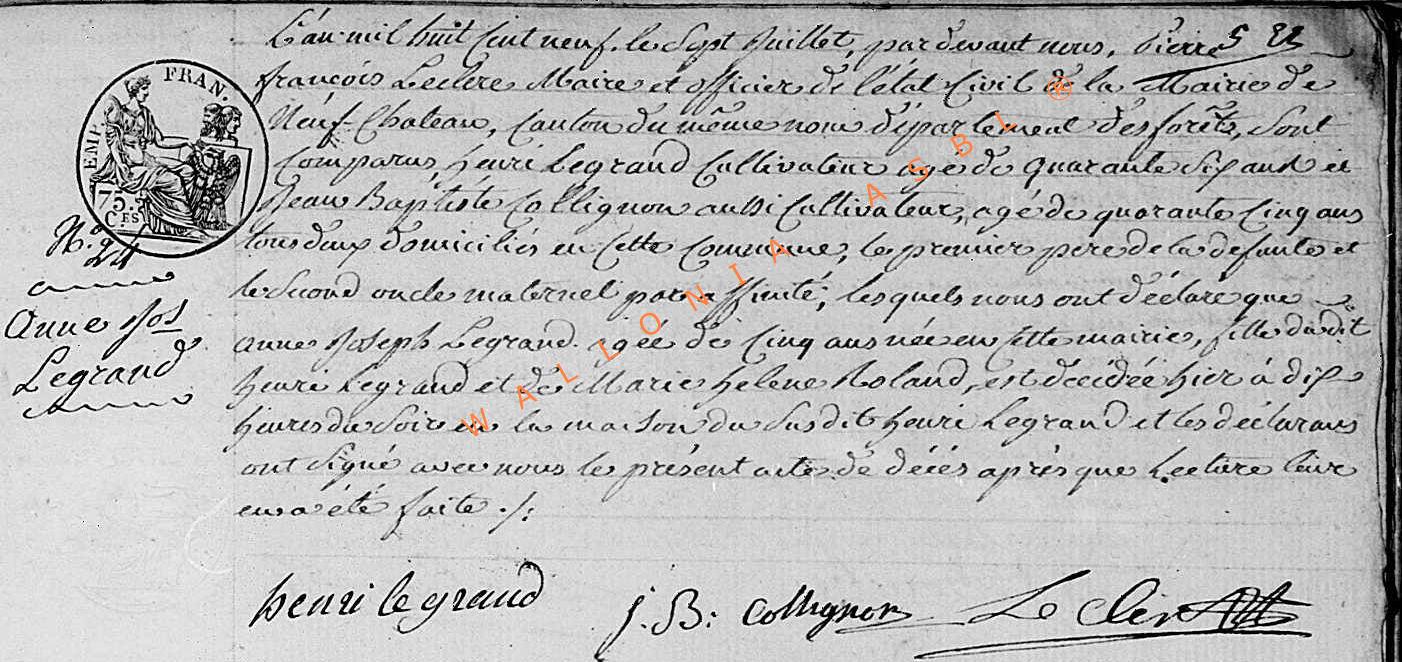 5 
L'an mil huit Cent neuf, le Sept Juillet, pardevant nous, Pierre
françois Leclere Maire et officier de l'état Civil de la Mairie de
Neuf-Chateau, Canton du même nom département des forêts, Sont
Comparus, henri Legrand Cultivateur agé de quarante Six ans et
Jean Baptiste Collignon aussi Cultivateur, agé de quarante Cinq ans
tous deux domiciliés en Cette Commune, le premier pere de la defunte et
le Second oncle maternel par affinité, lesquels nous ont déclaré que
anne Joseph Legrand agée de Cinq ans née en Cette mairie, fille dudit
henri Legrand et de Marie helene Roland, est décédée hier à dix
heures du Soir en la maison du Susdit henri Legrand et les déclarans
ont Signé avec nous le présent acte de décés après que Lecture leur
en a été faite ./:
EMP. FRAN.
75.
C.ES
N.o 24
anne Jos
Legrand
henri legrand
j. B: Collignon
Le Clere
WALLONIA ASBL ®